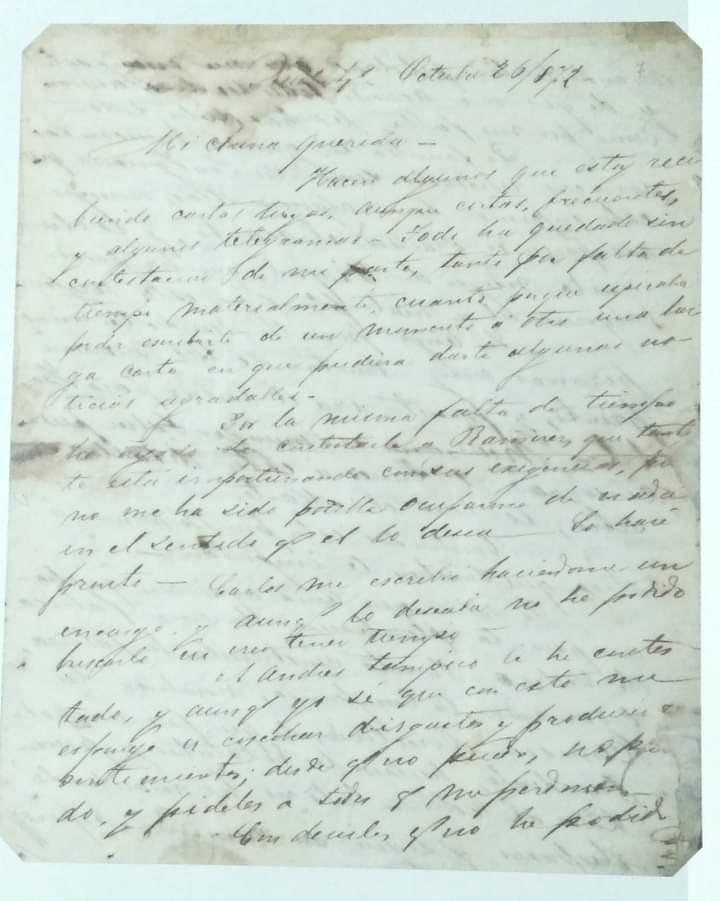 Octubre 26/872
Mi Anna querida —
Hacen algunos que estoy reci-
biendo cartas tuyas, aunque cortas, frecuentes,
y algunos telegramas — Todo ha quedado sin
contestacion de mi parte, tanto por falta de
tiempo materialmente, cuanto porque esperaba
poder escribirte de un momento á otro una lar-
ga carta en que pudiera darte algunas no-
ticias agradables —
Por la misma falta de tiempo
he dejado de contestarle a Ramirez, que tanto
te está importunando con sus exigencias, pues
no me ha sido posible ocuparme de nada
en el sentido q el lo desea — Lo haré
pronto — Carlos me escribió haciendome un
encargo, y aunq lo deseaba no he podido
buscarlo en tener tiempo
A Andres tampoco le he contes-
tado, y aunq yo sé que con esto me
espongo a cosechar disgustos y producir
sentimientos; desde q no puedo, no pue-
do, y pideles a todos q me perdonen
Con decirles q no he podido